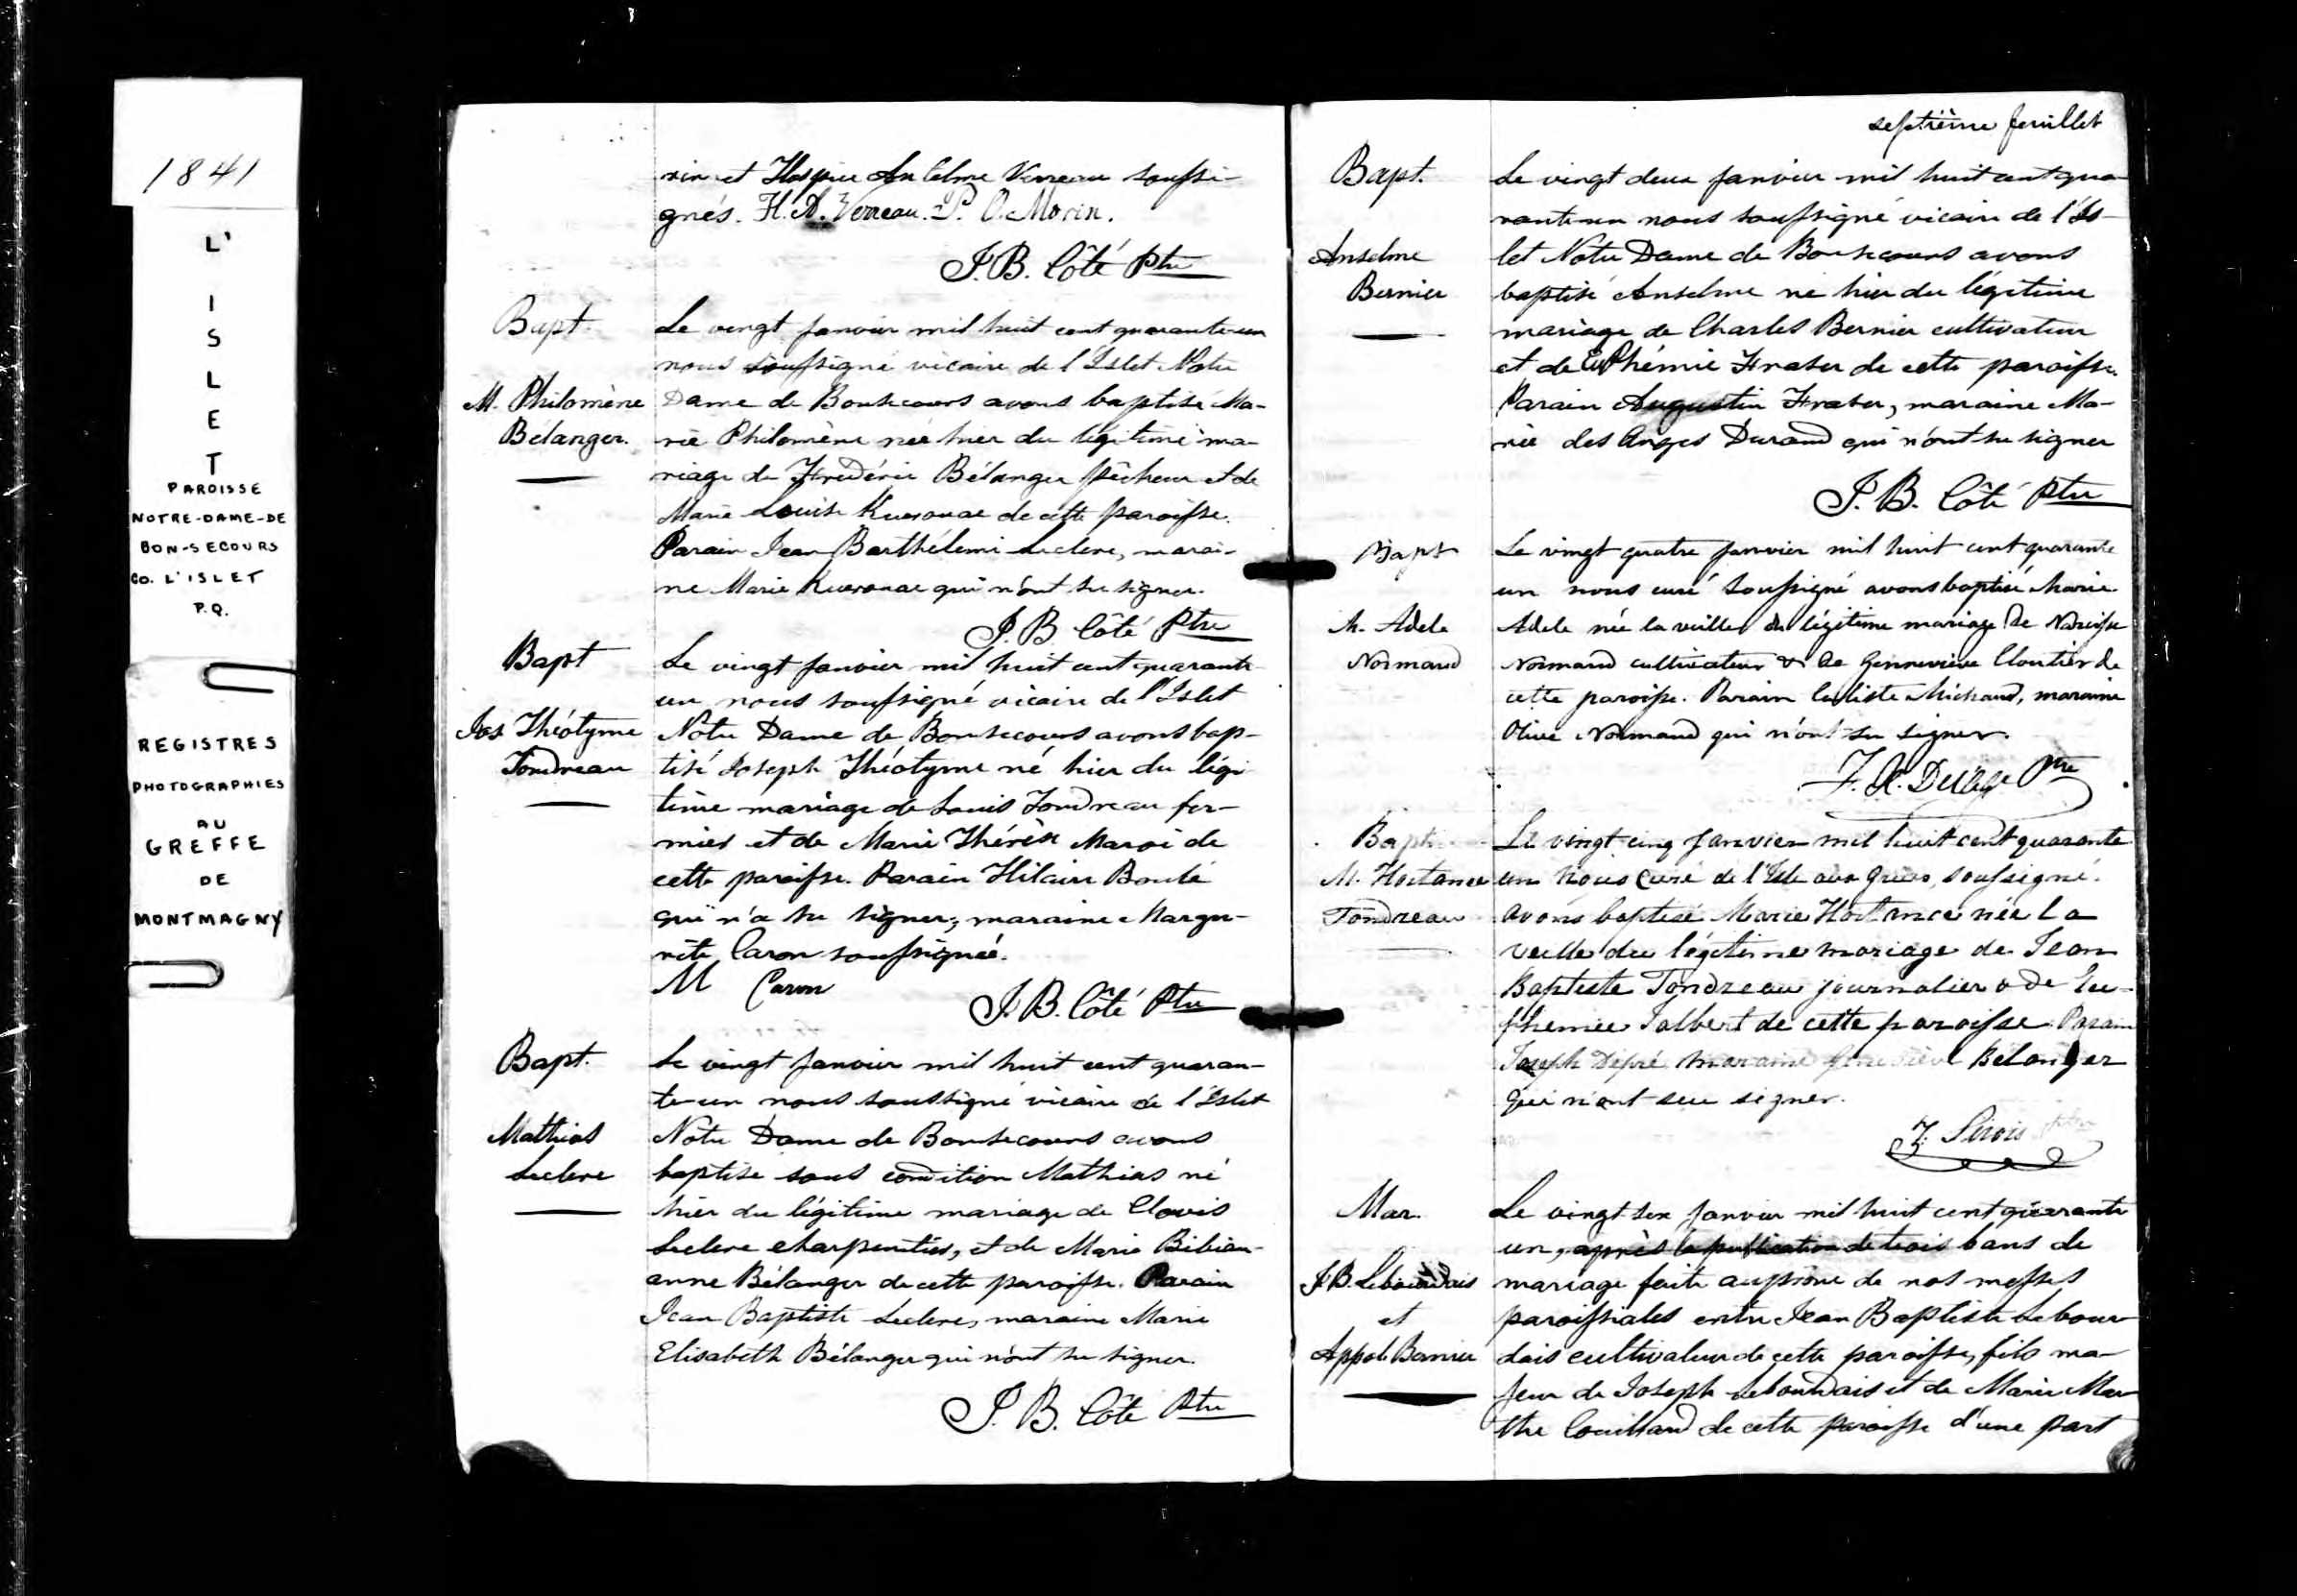 1841
L'
I
S
L
E
T
PAROISSE
NOTRE-DAME-DE
BON-SECOURS
CO. L'ISLET
P.Q.
REGISTRES
PHOTOGRAPHIES
AU
GREFFE
DE
MONTMAGNY
rin et Hospice Anselme Verreau soussi-
gnés. H. A. Verreau. P. O. Morin.
J. B. Côté Ptre
Bapt.
M. Philomène
Belanger.
Le vingt janvier mil huit cent quarante-un
nous soussigné vicaire de l'Islet Notre
Dame de Bonsecours avons baptisé Ma-
rie Philomène née hier du légitime ma-
riage de Frédéric Bélanger pêcheur et de
Marie Louise de cette paroisse.
Parain Jean Barthélemi Leclerc, marai-
ne Marie qui n'ont su signer.
J. B. Côté Ptre
Bapt
Jos Théotyme
Tondreau
Le vingt janvier mil huit cent quarante
un nous soussigné vicaire de l'Islet
Notre Dame de Bonsecours avons bap-
tisé Joseph Théotyme né hier du légi
time mariage de Louis Tondreau fer-
mier et de Marie Thérèse Maroi de
cette paroisse. Parain Hilaire Boulé
qui n'a su signer, maraine Margue-
rite Caron soussignée.
M Caron
J. B. Côté Ptre
Bapt.
Mathias
Leclerc
Le vingt janvier mil huit cent quaran-
te-un nous soussigné vicaire de l'Islet
Notre Dame de Bonsecours avons
baptisé sous condition Mathias né
hier du légitime mariage de Clovis
Leclerc charpentier, et de Marie Bibian-
anne Bélanger de cette paroisse. Parain
Jean Baptiste Leclerc, maraine Marie
Elisabeth Bélanger qui n'ont su signer.
J. B. Côté Ptre
septième feuillet
Bapt.
Anselme
Bernier
Le vingt deux janvier mil huit cent qua-
rante-un nous soussigné vicaire de l'Is-
let Notre Dame de Bonsecours avons
baptisé Anselme né hier du légitime
mariage de Charles Bernier cultivateur
et de Euphémie Fraser de cette paroisse.
Parain Augustin Fraser, maraine Ma-
rie des Anges Durand qui n'ont su signer
J. B. Côté Ptre
Bapt
M. Adele
Normand
Le vingt quatre janvier mil huit cent quarante
un nous curé soussigné avons baptisé Marie
Adele née la veille du légitime mariage de Narcisse
Normand cultivateur & de Gennevieve Cloutier de
cette paroisse. Parain Calliste Michaud, maraine
Olive Normand qui n'ont su signer.
F. X. Delâge Ptre
Bapt.
M. Hortance
Tondreau
Le vingt cinq janvier mil huit cent quarante
un nous curé de l'Isle aux Grues, soussigné.
avons baptisé Marie Hortance née la
veille du légitime mariage de Jean
Baptiste Tondreau journalier & de Eu-
phemie Talbert de cette paroisse. Parain
Joseph Dépré maraine Genevieve Bélanger
qui n'ont seu signer.
Z. Sirois Ptre
Mar.
J. B. Lebourdais
et
Appol. Bernier
Le vingt six janvier mil huit cent quarante
un, après la publication de trois bans de
mariage faite au prône de nos messes
paroissiales entre Jean Baptiste Lebour
dais cultivateur de cette paroisse, fils ma-
jeur de Joseph Lebourdais et de Marie Mar
the Couillard de cette paroisse d'une part